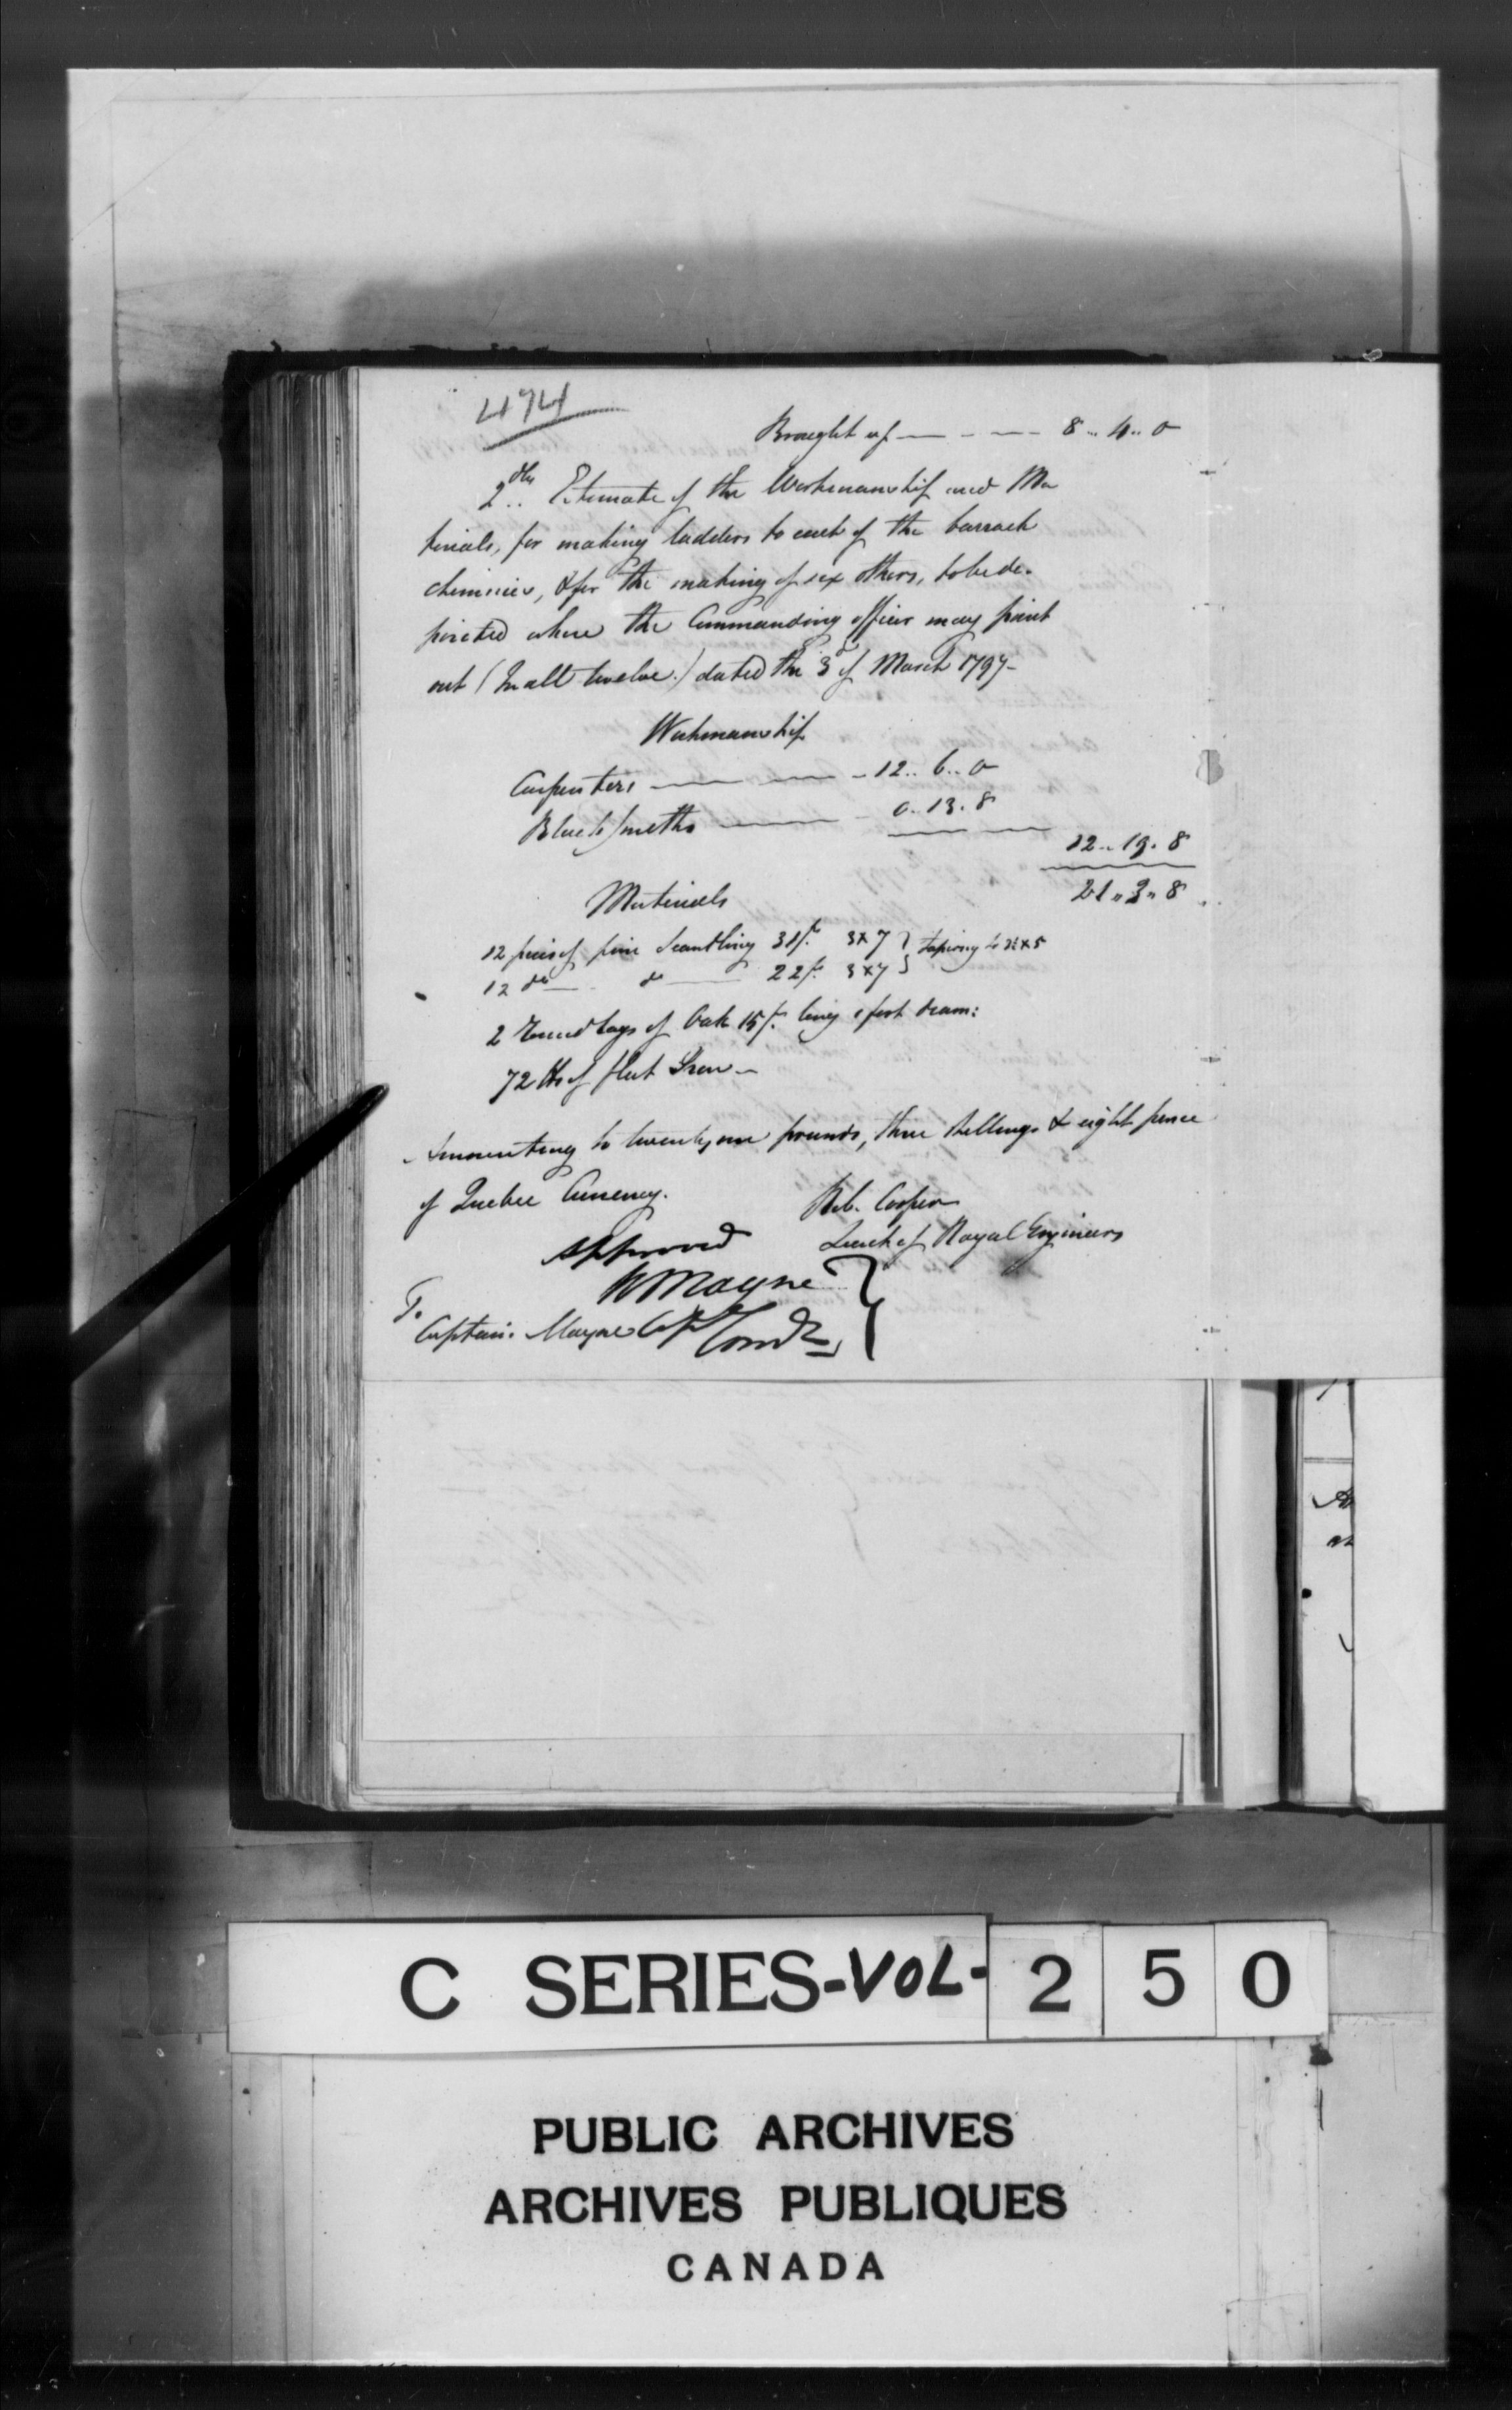 474
Brought up 8 .. 4 .. 0
2dly Estimate of the Workmanship and Ma
terials, for making ladders to each of the barrack
chimnies, & for the making of six others, to be de-
posited where the Commanding officer may point
out (In all twelve.) dated the 3d of March 1797-
Workmanship
Carpenters 12 .. 6 .. 0
Blacksmiths 0 . 13 . 8
12 .. 19 . 8
21 .. 3 .. 8
Materials
12 pieces of pine Scantling 31 ft. 3 x 7 } tapering to 2½ x 5
12 do do 22 ft. 3 x 7
2 Round logs of Oak 15 ft. long 1 foot diam:
72 lbs of flat Iron -
Amounting to twenty one pounds, three shillings & eight pence
of Quebec Currency.
Rob. Cooper
Lieut of Royal Engineers
Approved
W Mayne
To
Captain Mayne Capt Comdt
C SERIES-VOL- 2 5 0
PUBLIC ARCHIVES
ARCHIVES PUBLIQUES
CANADA